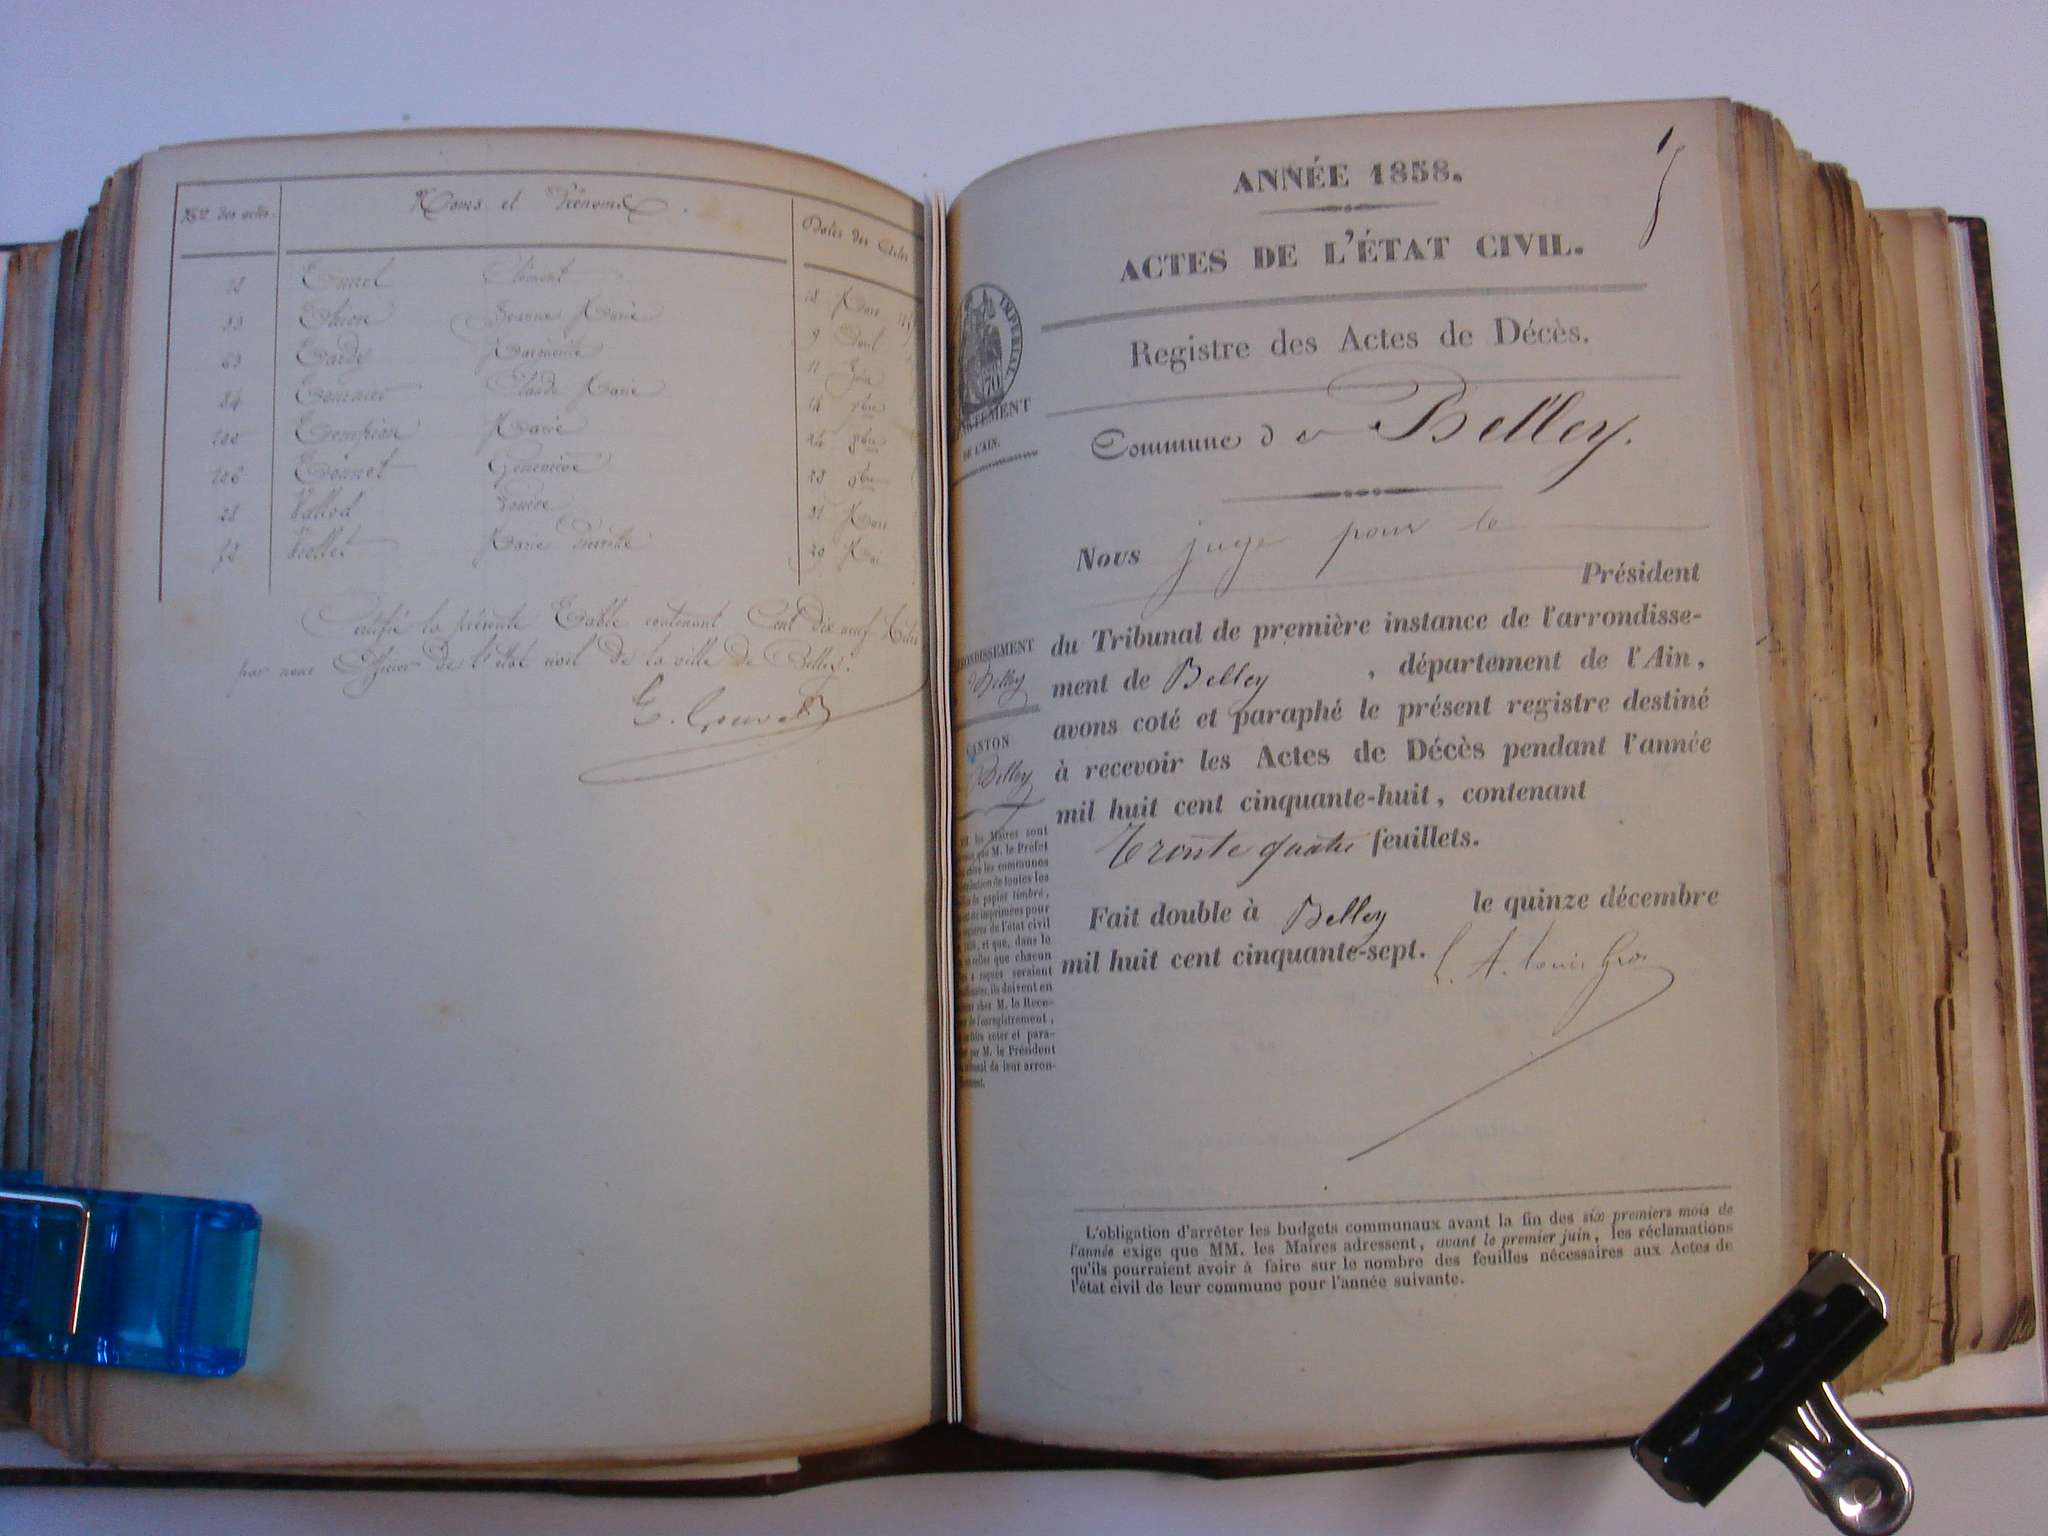 Nos des actes. Noms et Prénoms. Dates des Actes
Clément
39 Jeanne Marie 9
63 Tardy 11 Juin
84 Tournier Claude Marie 14 7bre
100 Marie 8bre
106 Geneviève 23 9bre
28 Vallod Louise 21 Mars
Viollet Marie 29 Mai
Certifié la présente Table contenant Cent dix neuf Actes
par nous Officier de l'état civil de la ville de Belley.
ANNÉE 1858.
ACTES DE L'ÉTAT CIVIL.
Registre des Actes de Décès.
Commune de Belley.
IMPERIALE.
70
DE L'AIN.
Nous juge pour le
Président
du Tribunal de première instance de l'arrondisse-
ment de Belley, département de l'Ain,
avons coté et paraphé le présent registre destiné
à recevoir les Actes de Décès pendant l'année
mil huit cent cinquante-huit, contenant
Trente quatre feuillets.
Fait double à Belley le quinze décembre
mil huit cent cinquante-sept.
Belley
CANTON
Belley
les Maires sont
que M. le Préfet
les communes
de toutes les
de papier timbré,
imprimées pour
de l'état civil
et que, dans le
où elles que chacun
reçues seraient
ils doivent en
chez M. le Rece-
de l'enregistrement,
faire coter et para-
par M. le Président
de leur arron-
L'obligation d'arrêter les budgets communaux avant la fin des six premiers mois de
l'année exige que MM. les Maires adressent, avant le premier juin, les réclamations
qu'ils pourraient avoir à faire sur le nombre des feuilles nécessaires aux Actes de
l'état civil de leur commune pour l'année suivante.